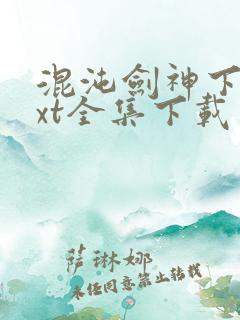 混沌劍神下
xt全集下載
薩琳娜
未经同意禁止转载